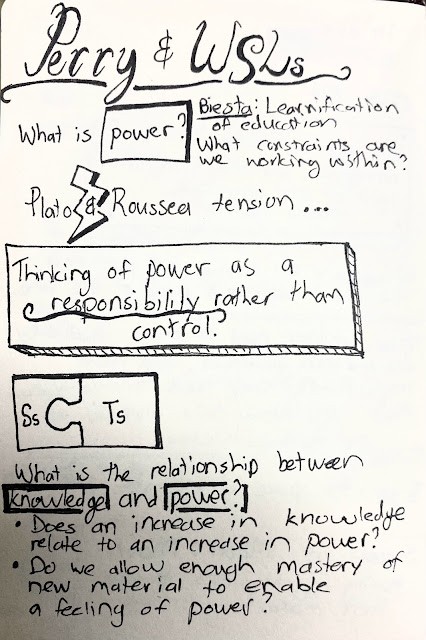 Perry & WSLs
What is power?
Biesta: Learnification
of education
What constraints are
we working within?
Plato & Roussea tension...
Thinking of power as a
responsibility rather than
control?
Ss Ts
What is the relationship between
knowledge and power?
• Does an increase in knowledge
relate to an increase in power?
• Do we allow enough mastery of
new material to enable
a feeling of power?